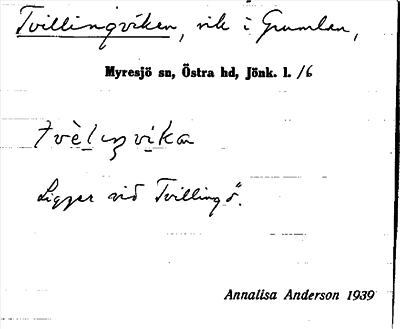 Tvillingviken, vik i Grumlan,
Myresjö sn, Östra hd, Jönk. l. 16
tvèlıŋvika
Ligger vid Tvillingö.
Annalisa Anderson 1939